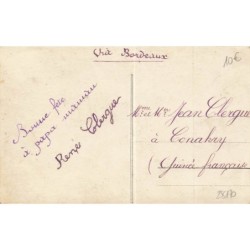 Via Bordeaux
10€
Bonne fête
à papa maman
René Clergue
Mme et Mr Jean Clergue
à Conakry
(Guinée française